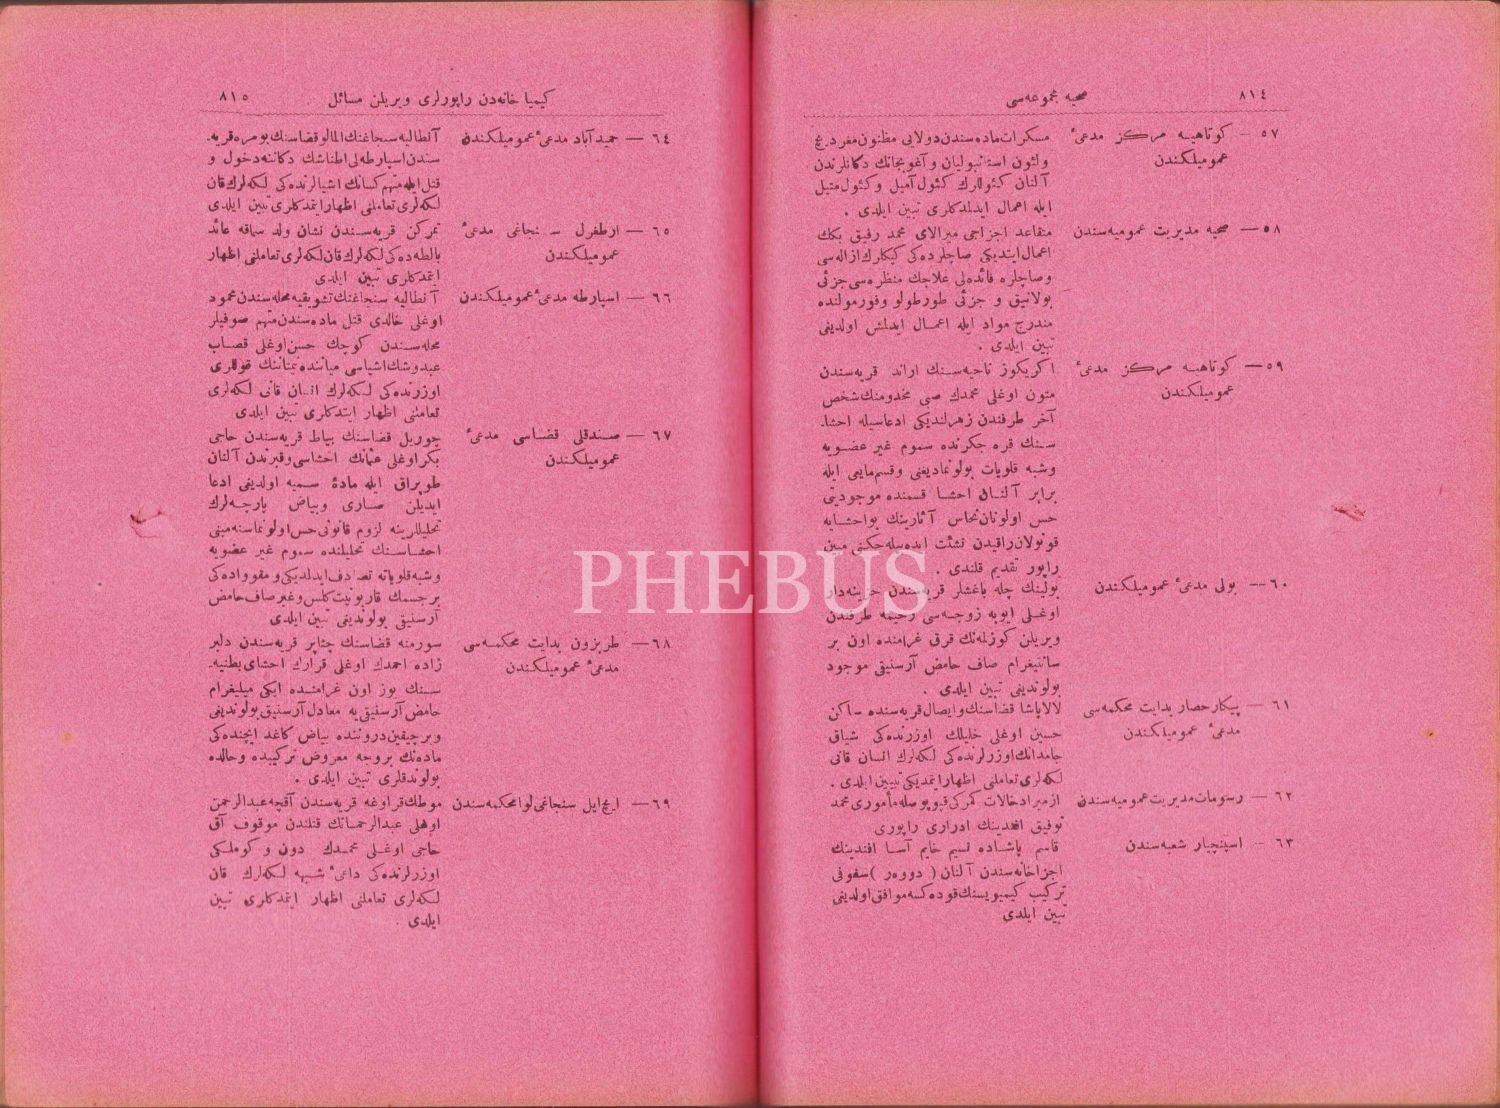 ٨١٤
صحیه مجموعه‌سی
٥٧ — كوتاهیه مركز مدعئ
عمومیلكندن
مسكرات ماده‌سندن دولایی مظنون مغردیچ
ولئون استانبولیان و آغوبجانك دكانلرندن
آلنان كئوللرك كئول آمیل و كئول متیل
ایله اعمال ایدلدكلری تبین ایلدی .
٥٨ — صحیه مدیریت عمومیه‌سندن
متقاعد اجزاجی میرالای محمد رفیق بكك
اعمال ایتدیكی صاچلرده‌كی كپكلرك ازاله‌سی
وصاچلره فائده‌لی علاجك منظره‌سی جزئی
بولانیق و جزئی طورطولو وفورمولنده
مندرج مواد ایله اعمال ایدلمش اولدیغی
تبین ایلدی .
٥٩ — كوتاهیه مركز مدعئ
عمومیلكندن
اكریكوز ناحیه‌سنك اراند قریه‌سندن
متون اوغلی محمدك صبی مخدومنك شخص
آخر طرفندن زهرلندیكی ادعاسیله احشا-
سنك قره جكرنده سموم غیر عضویه
وشبه قلویات بولونمادیغی وقسم مایعی ایله
برابر آلنان احشا قسمنده موجودیتی
حس اولونان نحاس آثارینك بو احشایه
قونولان راقیدن نشئت ایده‌بیله‌جكنی مبین
راپور تقدیم قلندی .
٦٠ — بولی مدعئ عمومیلكندن
بولینك چله باغشلر قریه‌سندن خزینه‌دار
اوغلی ایوبه زوجه‌سی رحیمه طرفندن
ویریلن كوزله‌مه‌نك قرق غرامنده اون بر
سانتیغرام صاف حامض آرسنیق موجود
بولوندیغی تبین ایلدی .
٦١ — پیكارحصار بدایت محكمه‌سی
مدعئ عمومیلكندن
لالاپاشا قضاسنك وایصال قریه‌سنده ساكن
حسین اوغلی خلیلك اوزرنده‌كی شیاق
جامدانك اوزرلرنده‌كی لكه‌لرك انسان قانی
لكه‌لری تعاملنی اظهار ایتمدیكی تبین ایلدی .
٦٢ — رسومات مدیریت عمومیه‌سندن
ازمیر ادخالات كمركی قپو پوصله مأموری محمد
توفیق افندینك ادراری راپوری
٦٣ — اسپنچیار شعبه‌سندن
قاسم پاشاده نسیم خایم آسا افندینك
اجزاخانه‌سندن آلنان ( دوور ) سفوفی
تركیب كیمیویسنك قوده‌كسه موافق اولدیغی
تبین ایلدی
كیمیا خانه‌دن راپورلری ویریلن مسائل .
٨١٥
٦٤ — حمیدآباد مدعئ عمومیلكندن
آنطالیه سنجاغنك المالو قضاسنك بومره قریه-
سندن اسپارطه‌لی اطناشك دكاننه دخول و
قتل ایله متهم كسانك اشیالرنده‌كی لكه‌لرك قان
لكه‌لری تعاملنی اظهار ایتمدكلری تبین ایلدی
٦٥ — ارطغرل سنجاغی مدعئ
عمومیلكندن
تمركن قریه‌سندن نشان ولد سماقه عائد
بالطه‌ده‌كی لكه‌لرك قان لكه‌لری تعاملنی اظهار
ایتمدكلری تبین ایلدی
٦٦ — اسپارطه مدعئ عمومیلكندن
آنطالیه سنجاغنك تشویقیه محله‌سندن محمود
اوغلی خالدی قتل ماده‌سندن متهم صوفیلر
محله‌سندن كوچك حسن اوغلی قصاب
عبدوشك اشیاسی میاننده نمتاننك قوللری
اوزرنده‌كی لكه‌لرك انسان قانی لكه‌لری
تعاملنی اظهار ایتدكلری تبین ایلدی
٦٧ — صندقلی قضاسی مدعئ
عمومیلكندن
چوریل قضاسنك بیاط قریه‌سندن حاجی
بكر اوغلی عثمانك احشاسی وقبرندن آلنان
طوپراق ایله مادۀ سمیه اولدیغی ادعا
ایدیلن صاری وبیاض پارچه‌لرك
تحلیللرینه لزوم قانونی حس اولونماسنه مبنی
احشاسنك تحلیلنده سموم غیر عضویه
وشبه قلویاته تصادف ایدلدیكی و مقوواده‌كی
بر جسمك قاربونیت كلس وغیر صاف حامض
آرسنیق بولوندیغی تبین ایلدی
٦٨ — طربزون بدایت محكمه‌سی
مدعئ عمومیلكندن
سورمنه قضاسنك چنابر قریه‌سندن دلبر
زاده احمدك اوغلی قرارك احشای بطنیه-
سنك یوز اون غرامنده ایكی میلیغرام
حامض آرسنیق‌یه معادل آرسنیق بولوندیغی
وبر چیقین دروننده بیاض كاغد ایچنده‌كی
ماده‌نك بروجه معروض تركیبده وحالده
بولوندقلری تبین ایلدی .
٦٩ — ایچ‌ایل سنجاغی لوا محكمه‌سندن
موطك قراوغه قریه‌سندن آقچه عبدالرحمن
اوهلی عبدالرحماتك قتلندن موقوف آق
حاجی اوغلی محمدك دون و كوملكی
اوزرلرنده‌كی داعئ شبهه لكه‌لرك قان
لكه‌لری تعاملنی اظهار ایتمدكلری تبین
ایلدی .
PHEBUS